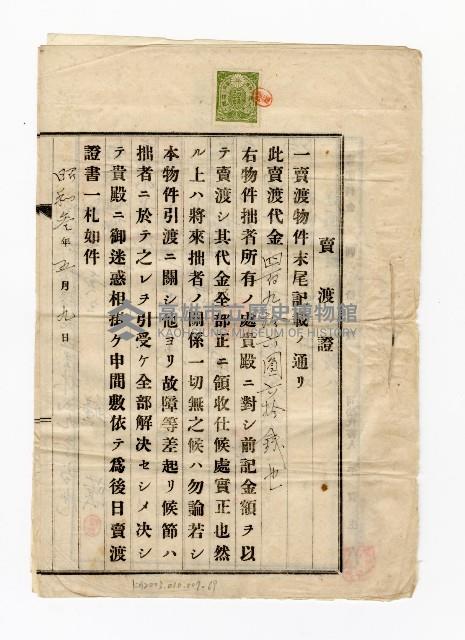 賣渡證
一賣渡物件末尾記載ノ通リ
此賣渡代金四百九拾六圓六拾錢也
右物件拙者所有ノ處貴殿ニ對シ前記金額ヲ以
テ賣渡シ其代金全部正ニ領收仕候處實正也然
ル上ハ將來拙者ノ關係一切無之候ハ勿論若シ
本物件引渡ニ關シ他ヨリ故障等差起リ候節ハ
拙者ニ於テ之レヲ引受ケ全部解決セシメ決シ
テ貴殿ニ御迷惑相掛ケ申間敷依テ爲後日賣渡
證書一札如件
昭和參年五月九日
高雄市立歷史博物館
KAOHSIUNG MUSEUM OF HISTORY
KH2003.010.007-69